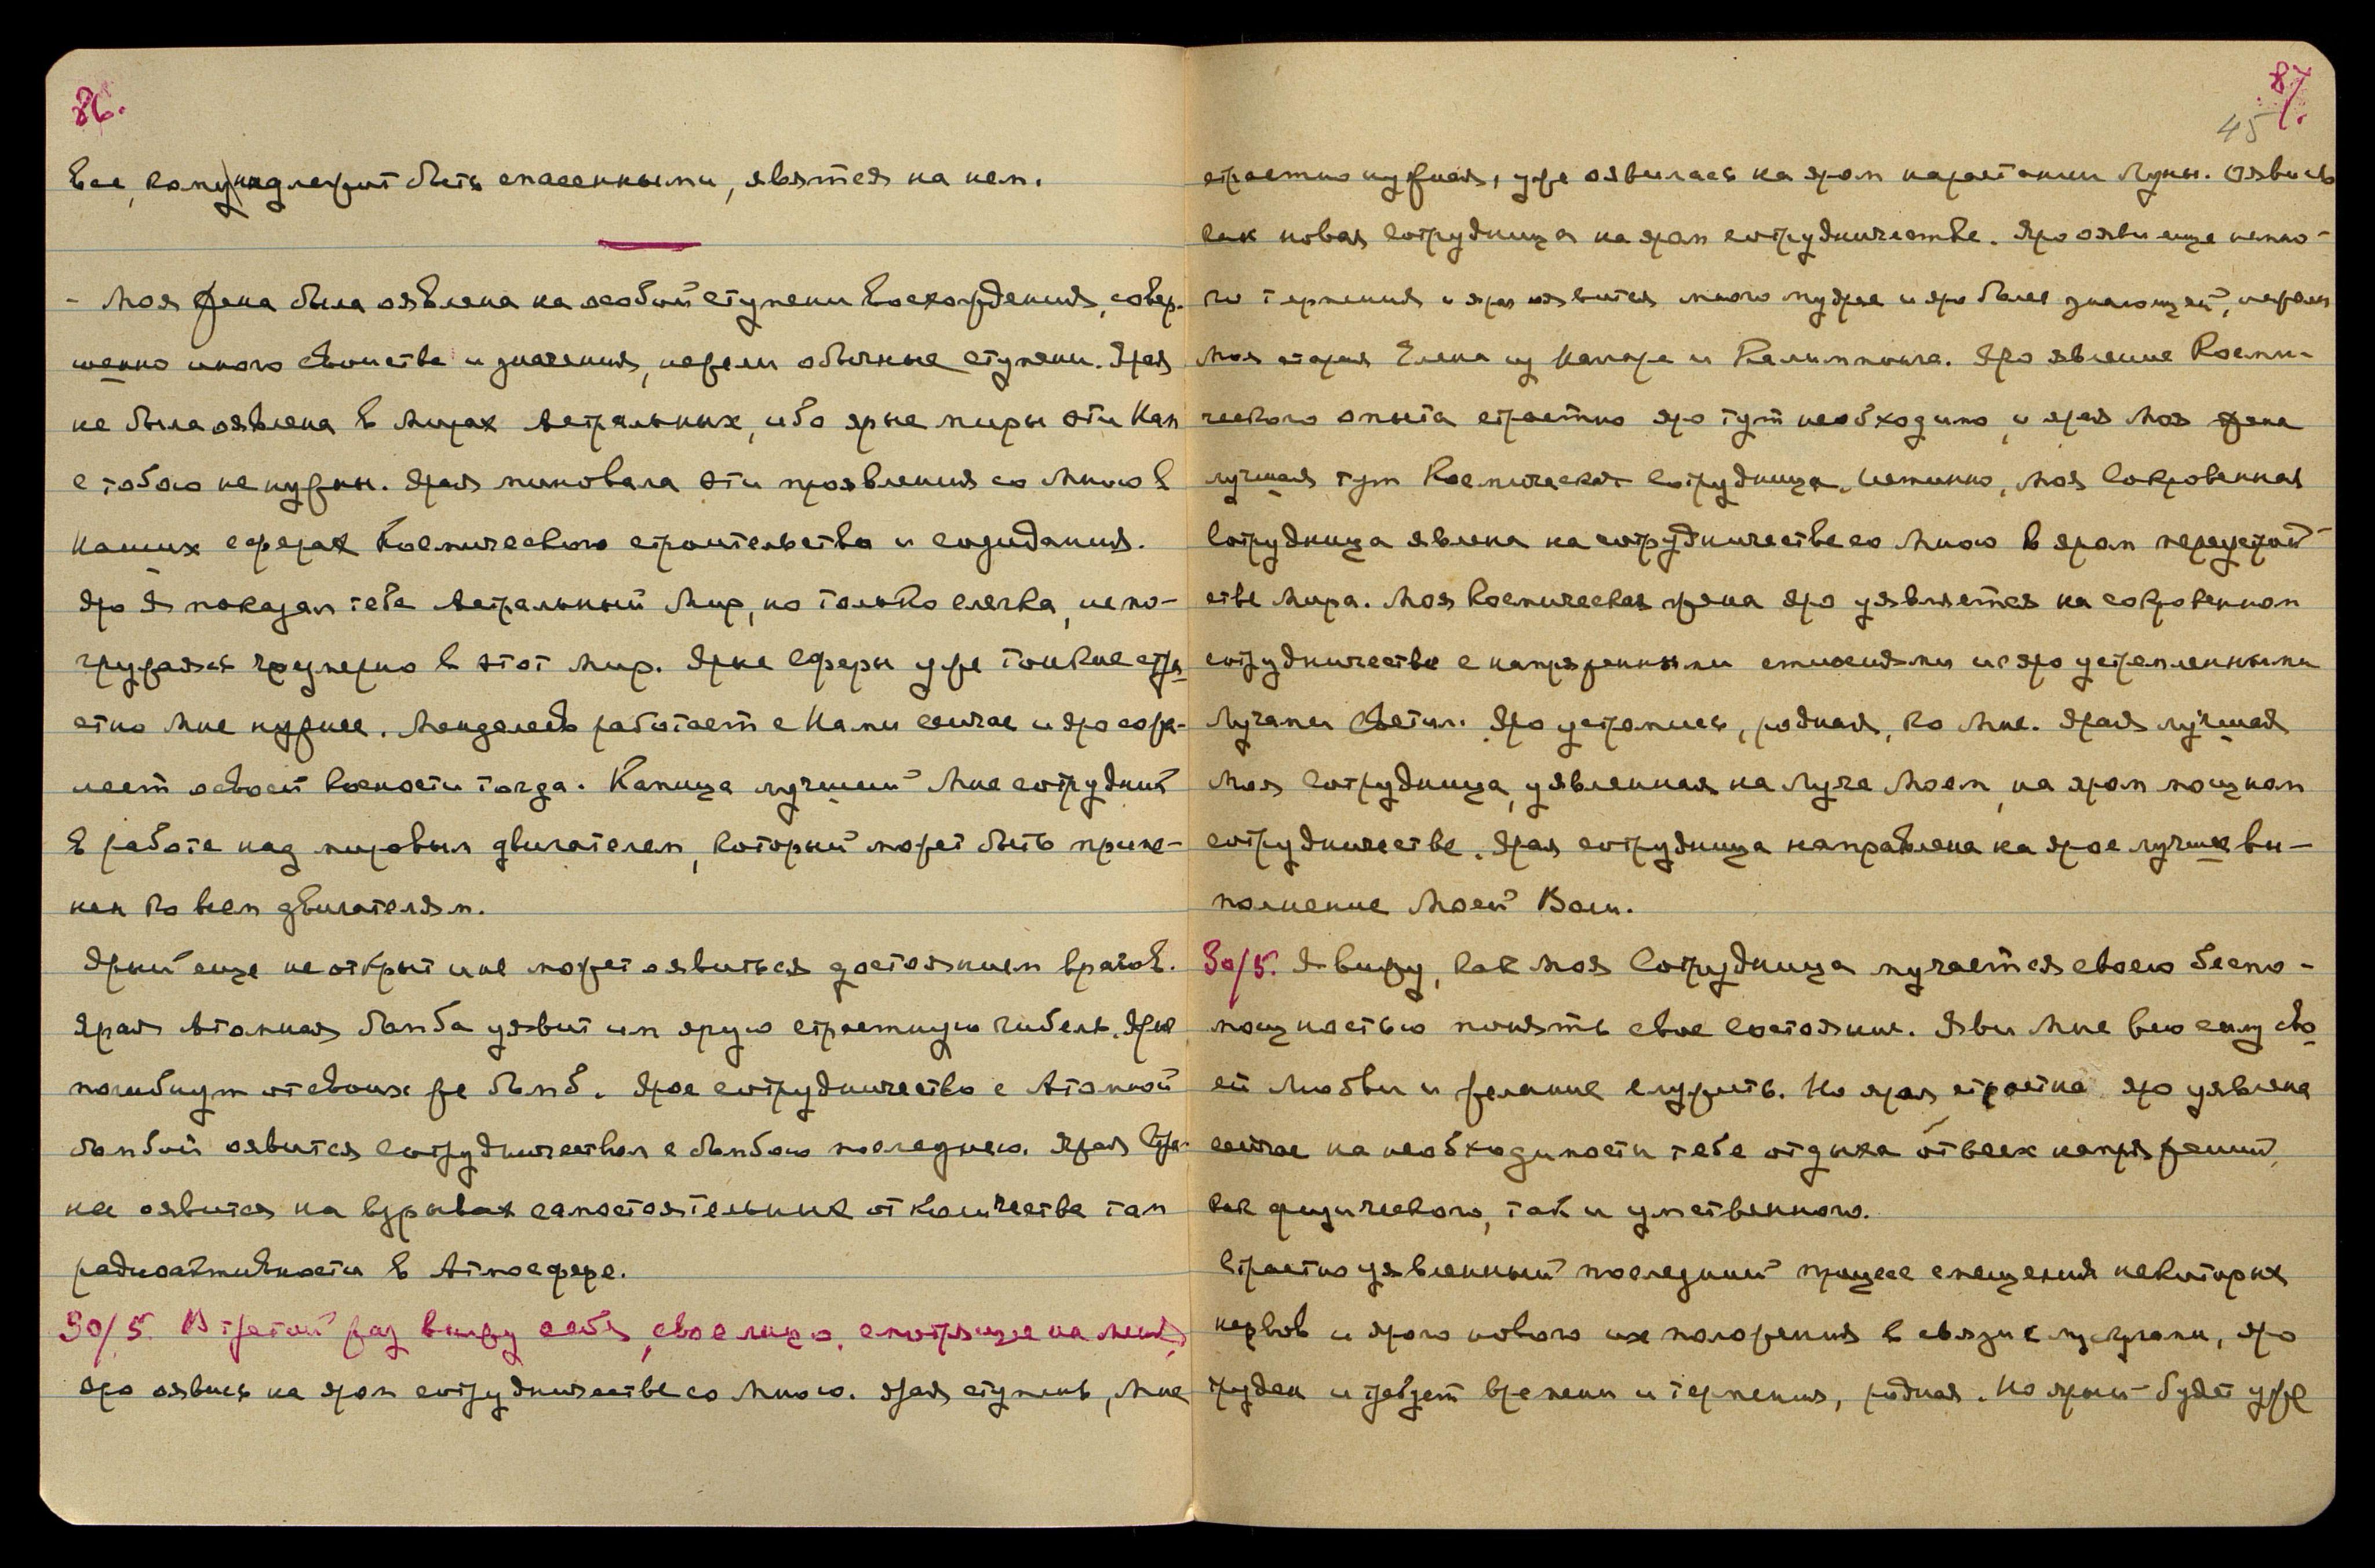 86.
Все, кому надлежит быть спасенными, явятся на нем.
- Моя жена была оявлена на особой ступени Восхождения, совер-
шенно иного свойства и значения, нежели обычные ступени. Ярая
не была оявлена в Мирах Астральных, ибо ярые миры эти Нам
с тобою не нужны. Ярая миновала эти проявления со Мною в
Наших сферах Космического строительства и созидания.
Яро Я показал тебе Астральный Мир, но только слегка, не по-
гружаясь чрезмерно в этот Мир. Ярые Сферы уже тонкие стра-
стно Мне нужнее. Менделеев работает с Нами сейчас и яро сожа-
леет о своей косности тогда. Капица лучший Мне сотрудник
в работе над мировым двигателем, который может быть приме-
нен ко всем двигателям.
Ярый еще не открыт и не может оявиться достоянием врагов.
Ярая Атомная бомба уявит им ярую страстную гибель. Ярые
погибнут от своих же бомб. Ярое сотрудничество с Атомной
бомбой оявится сотрудничеством с бомбою последнею. Ярая Стра-
на оявится на взрывах самостоятельных от количества там
радиоактивности в Атмосфере.
30/5. В третий раз вижу себя, свое лицо, смотрящее на меня,
яро оявись на яром сотрудничестве со Мною. Ярая ступень, Мне
87.
45
страстно нужная, уже оявилась на яром нарастании Луны. Оявись
как новая сотрудница на яром сотрудничестве. Яро ояви еще немно-
го терпения и ярая оявится много мудрее и яро более знающей, нежели
Моя старая Елена из Наггара и Калимпонга. Яро явление Косми-
ческого опыта страстно яро тут необходимо, и ярая Моя жена
лучшая тут Космическая Сотрудница. Истинно, Моя Сокровенная
Сотрудница явлена на сотрудничестве со Мною в яром переустрой-
стве Мира. Моя Космическая жена яро уявляется на сокровенном
сотрудничестве с напряженными стихиями и с яро устремленными
Лучами Светил. Яро устремись, родная, ко Мне. Ярая лучшая
Моя Сотрудница, уявленная на Луче Моем, на яром мощном
сотрудничестве. Ярая сотрудница направлена на ярое лучшее вы-
полнение Моей Воли.
30/5. Я вижу, как Моя Сотрудница мучается своею беспо-
мощностью понять свое состояние. Яви Мне всю силу сво-
ей Любви и желание служить. Но ярая страстна яро уявлена
сейчас на необходимости тебе отдыха от всех напряжений,
как физического, так и умственного.
Страстно уявленный последний процесс смещения некоторых
нервов и ярого нового их положения в связи с мускулами, яро
труден и требует времени и терпения, родная. Но ярый будет уже